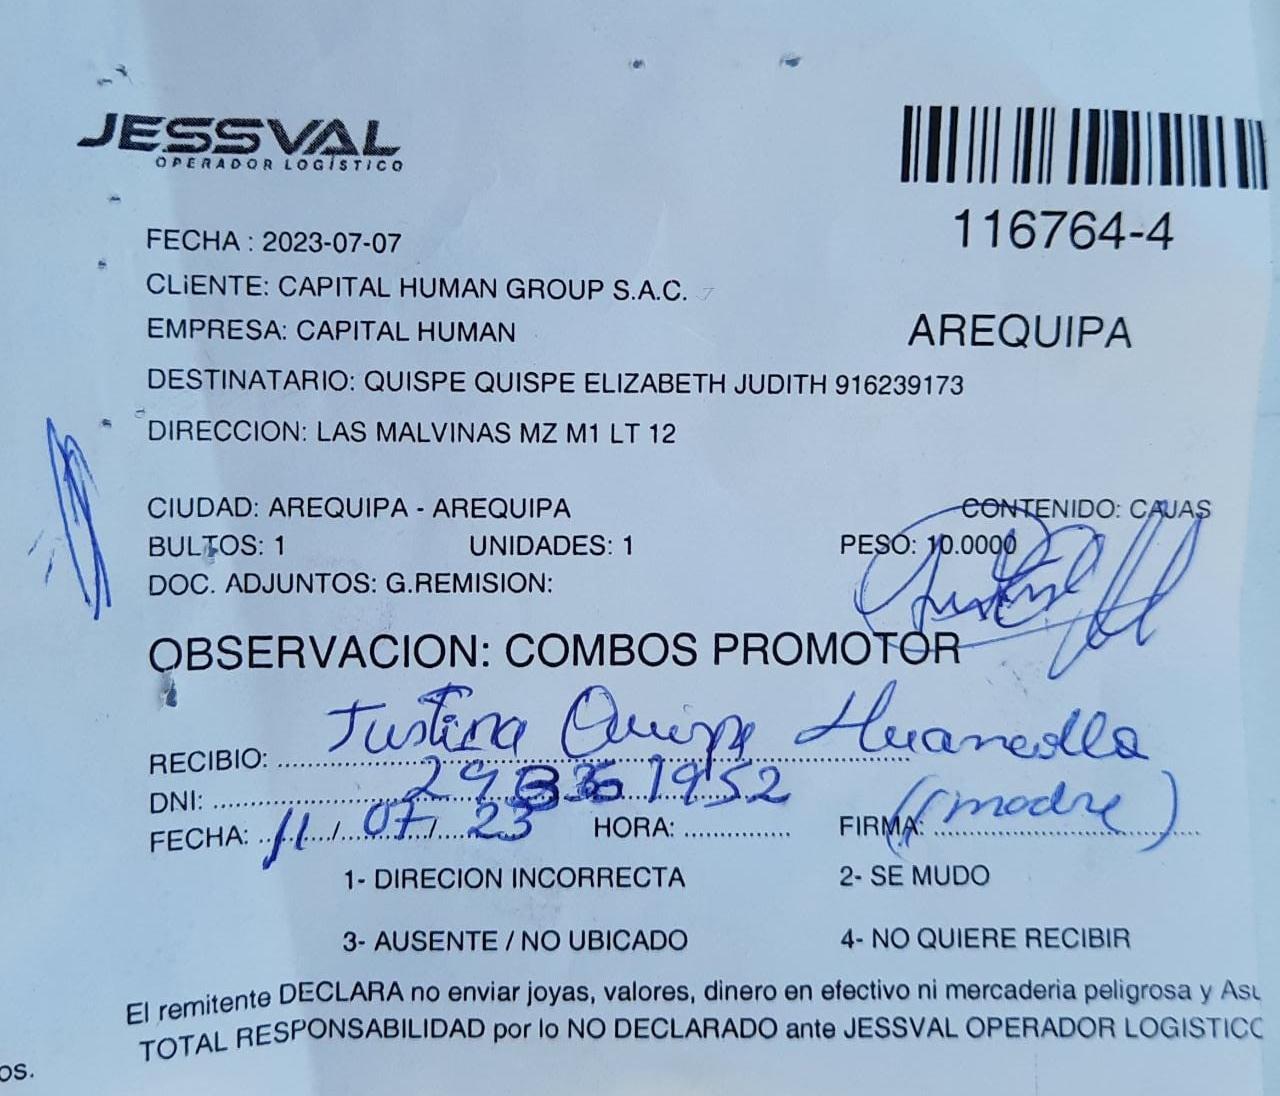 JESSVAL
OPERADOR LOGÍSTICO
116764-4
FECHA : 2023-07-07
CLiENTE: CAPITAL HUMAN GROUP S.A.C.
EMPRESA: CAPITAL HUMAN
AREQUIPA
DESTINATARIO: QUISPE QUISPE ELIZABETH JUDITH 916239173
DIRECCION: LAS MALVINAS MZ M1 LT 12
CIUDAD: AREQUIPA - AREQUIPA CONTENIDO: CAJAS
BULTOS: 1 UNIDADES: 1 PESO: 10.0000
DOC. ADJUNTOS: G.REMISION:
OBSERVACION: COMBOS PROMOTOR
RECIBIO: Justina Quispe
DNI:
FECHA: 11/07/23 HORA: FIRMA: (madre)
1- DIRECION INCORRECTA 2- SE MUDO
3- AUSENTE / NO UBICADO 4- NO QUIERE RECIBIR
El remitente DECLARA no enviar joyas, valores, dinero en efectivo ni mercaderia peligrosa y
TOTAL RESPONSABILIDAD por lo NO DECLARADO ante JESSVAL OPERADOR LOGISTICO
os.